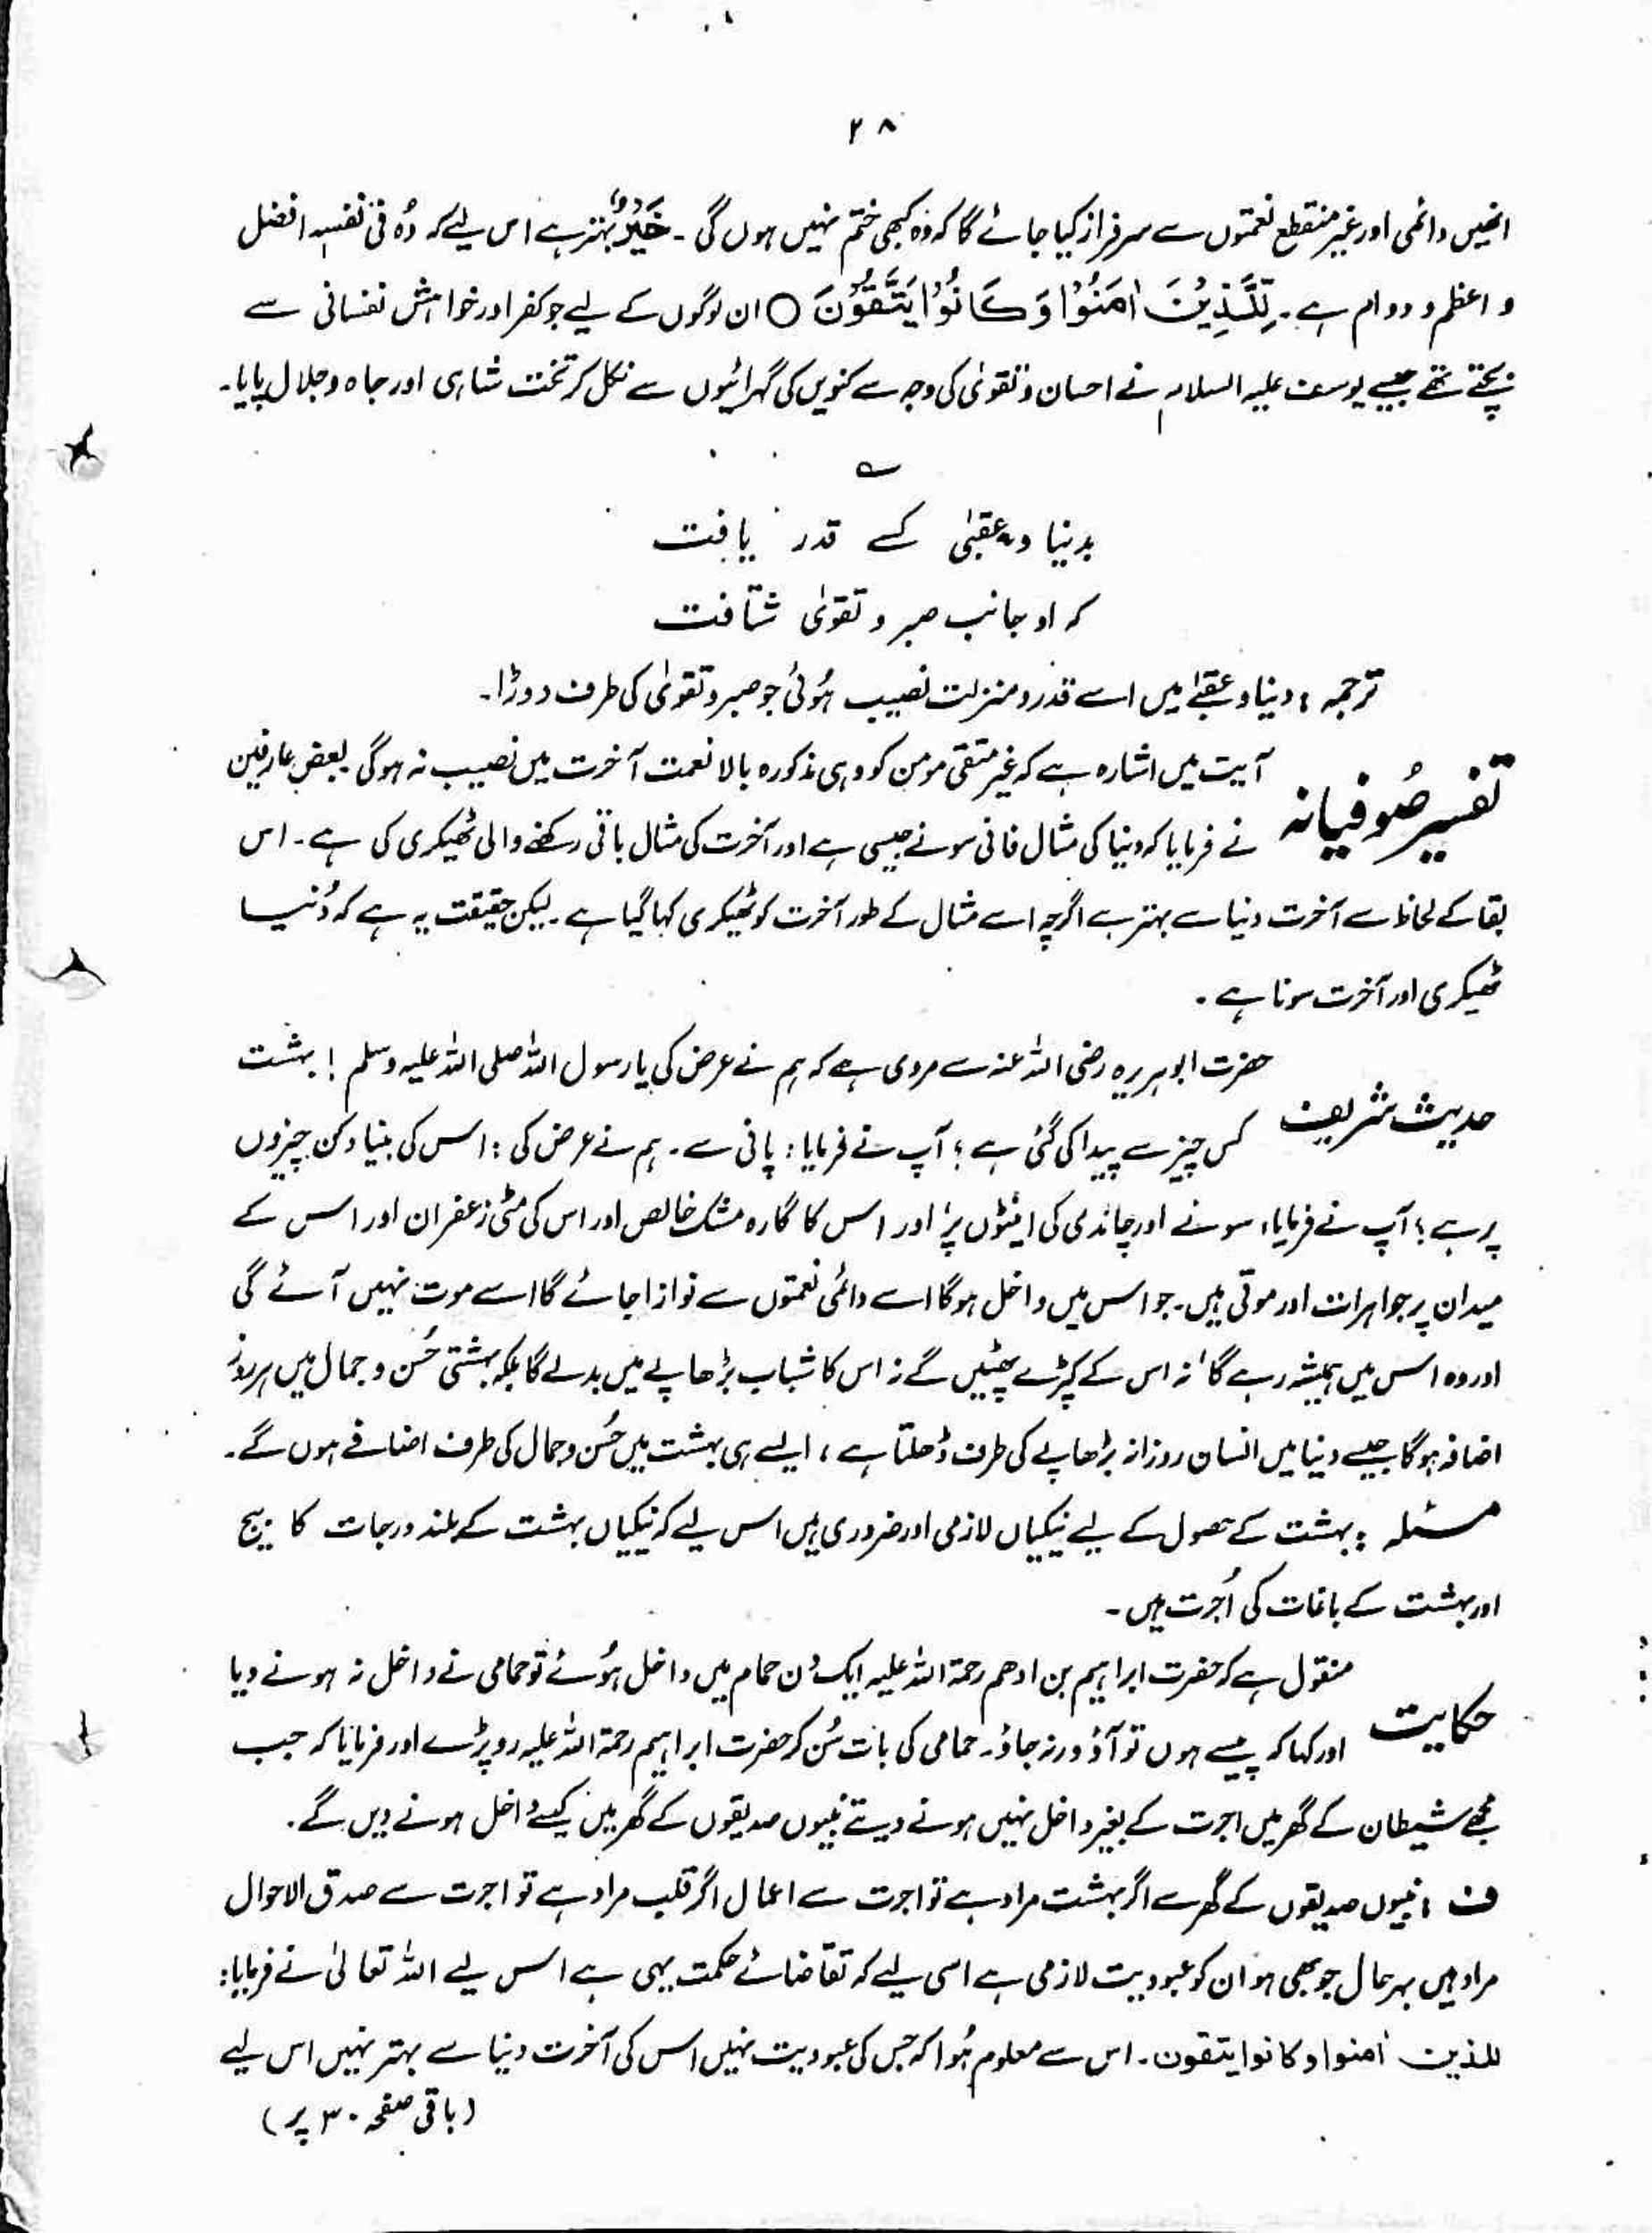 ۲۸
انھیں دائمی اور غیر منقطع نعمتوں سے سرفراز کیا جائے گا کہ وہ کبھی ختم نہیں ہوں گی ۔ خَیْرٌ بہتر ہے اس لیے کہ وُہ فی نفسہٖ افضل
و اعظم و دوام ہے ۔ لِّلَّذِیْنَ اٰمَنُوْا وَ کَانُوْا یَتَّقُوْنَ ○ ان لوگوں کے لیے جو کفر اور خواہش نفسانی سے
بچتے تھے جیسے یوسف علیہ السلام نے احسان و تقویٰ کی وجہ سے کنویں کی گہرائیوں سے نکل کر تخت شاہی اور جاہ و جلال پایا۔
؎
بدنیا و عقبٰی کسے قدر یافت
کہ او جانب صبر و تقویٰ شتافت
ترجمہ : دنیا و عقبےٰ میں اسے قدر و منزلت نصیب ہُوئی جو صبر و تقویٰ کی طرف دوڑا۔
تفسیر صُوفیانہ آیت میں اشارہ ہے کہ غیر متقی مومن کو وہی مذکورہ بالا نعمت آخرت میں نصیب نہ ہوگی بعض عارفین
نے فرمایا کہ دنیا کی مثال فانی سونے جیسی ہے اور آخرت کی مثال باقی رکھنے والی ٹھیکری کی ہے ۔ اس
بقا کے لحاظ سے آخرت دنیا سے بہتر ہے اگرچہ اسے مثال کے طور آخرت کو ٹھیکری کہا گیا ہے ۔ لیکن حقیقت یہ ہے کہ دُنیا
ٹھیکری اور آخرت سونا ہے ۔
حدیث شریف حضرت ابوہریرہ رضی اللہ عنہ سے مروی ہے کہ ہم نے عرض کی یا رسول اللہ صلی اللہ علیہ وسلم ! بہشت
کس چیز سے پیدا کی گئی ہے ؟ آپ نے فرمایا : پانی سے ۔ ہم نے عرض کی : اس کی بنیاد کن چیزوں
پر ہے ؟ آپ نے فرمایا : سونے اور چاندی کی اینٹوں پر، اور اس کا گارہ مشک خالص اور اس کی مٹی زعفران اور اس کے
میدان پر جواہرات اور موتی ہیں ۔ جو اس میں داخل ہوگا اسے دائمی نعمتوں سے نوازا جائے گا اسے موت نہیں آئے گی
اور وہ اس میں ہمیشہ رہے گا ' نہ اس کے کپڑے پھٹیں گے نہ اس کا شباب بڑھاپے میں بدلے گا بلکہ بہشتی حُسن و جمال میں ہر روز
اضافہ ہوگا جیسے دنیا میں انسان روزانہ بڑھاپے کی طرف ڈھلتا ہے ، ایسے ہی بہشت میں حُسن و جمال کی طرف اضافے ہوں گے ۔
مسئلہ : بہشت کے حصول کے لیے نیکیاں لازمی اور ضروری ہیں اس لیے کہ نیکیاں بہشت کے بلند درجات کا بیج
اور بہشت کے باغات کی اُجرت ہیں ۔
حکایت منقول ہے کہ حضرت ابراہیم بن ادھم رحمۃ اللہ علیہ ایک دن حمام میں داخل ہُوئے تو حمامی نے داخل نہ ہونے دیا
اور کہا کہ پیسے ہوں تو آؤ ورنہ جاؤ۔ حمامی کی بات سُن کر حضرت ابراہیم رحمۃ اللہ علیہ رو پڑے اور فرمایا کہ جب
مجھے شیطان کے گھر میں اجرت کے بغیر داخل نہیں ہونے دیتے نبیوں صدیقوں کے گھر میں کیسے داخل ہونے دیں گے ۔
ف : نبیوں صدیقوں کے گھر سے اگر بہشت مراد ہے تو اجرت سے اعمال اگر قلب مراد ہے تو اجرت سے صدق الاحوال
مراد ہیں بہرحال جو بھی ہو ان کو عبودیت لازمی ہے اسی لیے کہ تقاضائے حکمت یہی ہے اس لیے اللہ تعالیٰ نے فرمایا :
للذین اٰمنوا و کانوا یتقون ۔ اس سے معلوم ہُوا کہ جس کی عبودیت نہیں اس کی آخرت دنیا سے بہتر نہیں اس لیے
(باقی صفحہ ۳۰ پر)